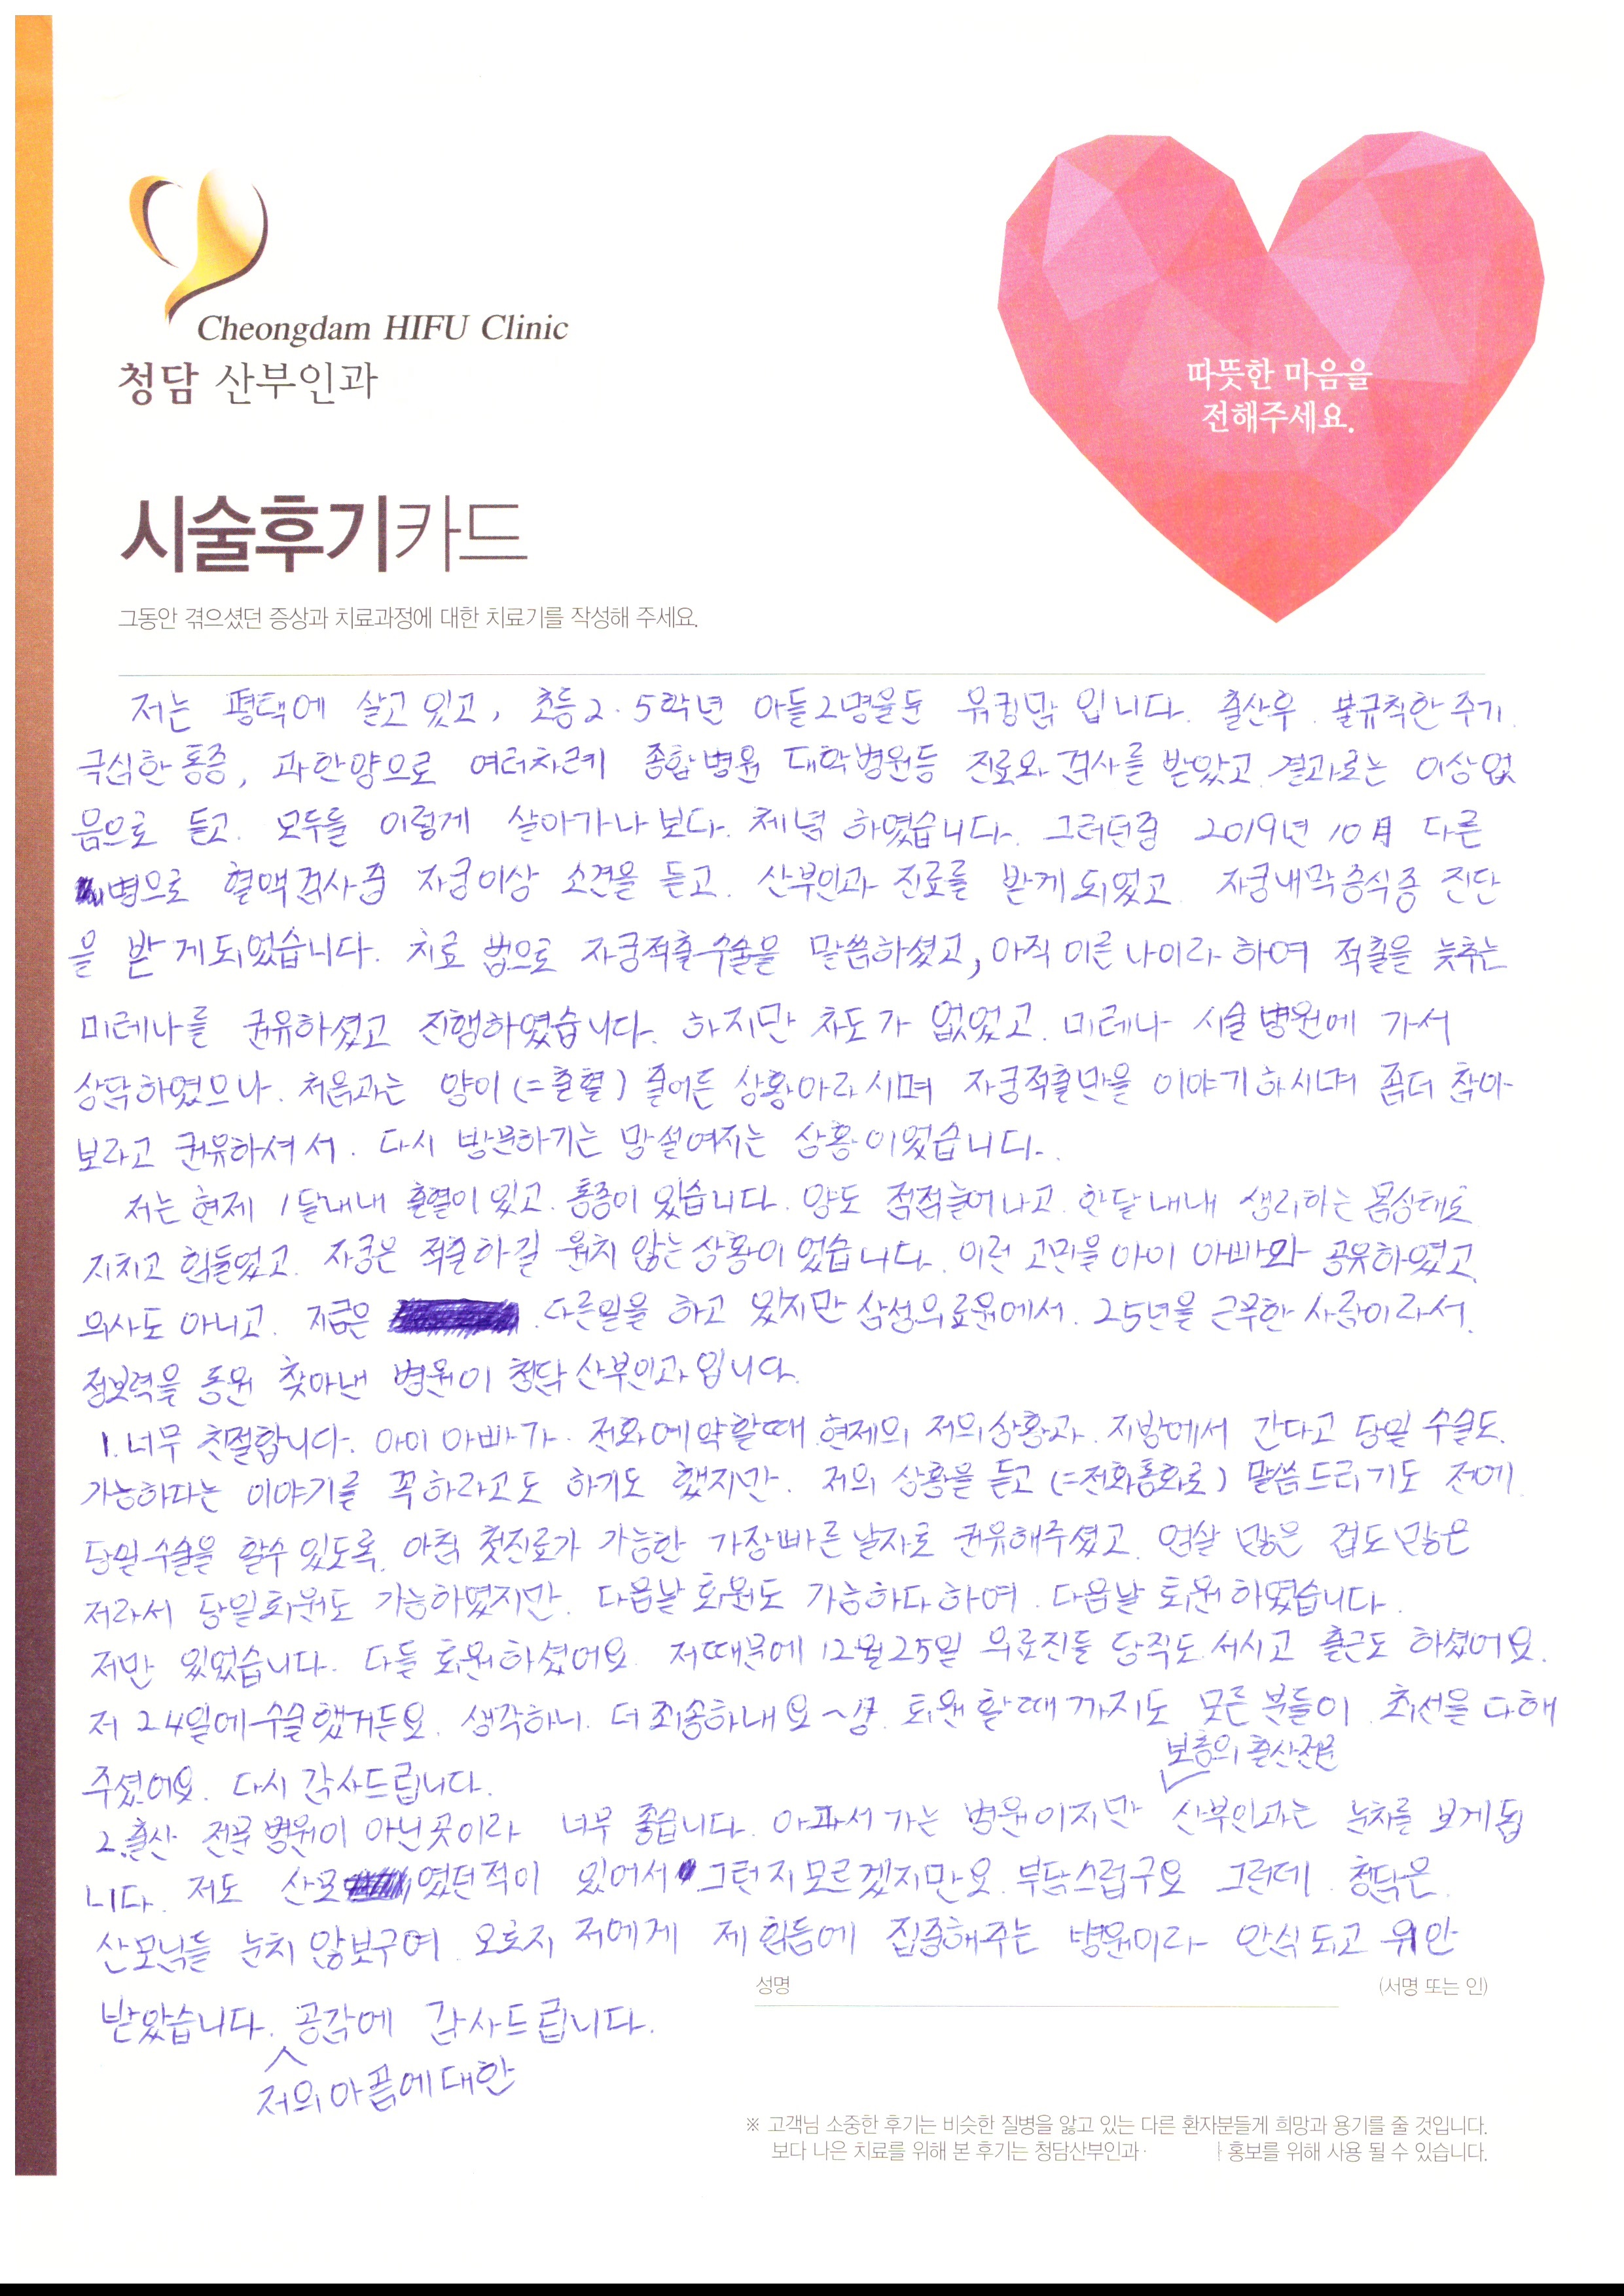 Cheongdam HIFU Clinic
청담 산부인과
따뜻한 마음을
전해주세요.
시술후기카드
그동안 겪으셨던 증상과 치료과정에 대한 치료기를 작성해 주세요.
저는 평택에 살고 있고, 초등2·5학년 아들2명을둔 워킹맘 입니다. 출산후. 불규칙한 주기.
극심한 통증, 과한양으로 여러차례 종합병원 대학병원등 진료와 검사를 받았고 결과로는 이상없
음으로 듣고. 모두들 이렇게 살아가나 보다. 체념 하였습니다. 그러던중 2019년 10月 다른
병으로 혈액검사중 자궁이상 소견을 듣고. 산부인과 진료를 받게되었고 자궁내막증식증 진단
을 받게되었습니다. 치료 법으로 자궁적출수술을 말씀하셨고, 아직 이른 나이라 하여 적출을 늦추는
미레나를 권유하셨고 진행하였습니다. 하지만 차도가 없었고. 미레나 시술 병원에 가서
상담하였으나. 처음과는 양이 (=출혈) 줄어든 상황이라 시며 자궁적출만을 이야기하시며 좀더 참아
보라고 권유하셔서. 다시 방문하기는 망설여지는 상황이었습니다.
저는 현제 1달내내 출혈이 있고. 통증이 있습니다. 양도 점점늘어나고 한달내내 생리하는 몸상태로
지치고 힘들었고. 자궁은 적출하길 원치 않는상황이었습니다. 이런 고민을 아이 아빠와 공유하였고
의사도 아니고. 지금은 다른일을 하고 있지만 삼성의료원에서. 25년을 근무한 사람이라서.
정보력을 동원 찾아낸 병원이 청담산부인과 입니다.
1. 너무 친절합니다. 아이 아빠가. 전화예약할때 현제의 저의상황과. 지방에서 간다고 당일 수술도.
가능하다는 이야기를 꼭하라고도 하기도 했지만. 저의 상황을 듣고 (=전화통화로) 말씀드리기도 전에
당일수술을 할수 있도록. 아침 첫진료가 가능한 가장빠른 날자로 권유해주셨고. 엄살 많은 겁도많은
저라서 당일퇴원도 가능하였지만. 다음날 퇴원도 가능하다하여. 다음날 퇴원하였습니다.
저만 있었습니다. 다들 퇴원하셨어요. 저때문에 12월25일 의료진들 당직도 서시고 출근도 하셨어요.
저 24일에수술했거든요. 생각하니. 더 죄송하내요~ 퇴원 할때까지도 모든 분들이 최선을 다해
주셨어요. 다시 감사드립니다.
보통의 출산전문
2. 출산 전문병원이 아닌곳이라 너무 좋습니다. 아파서 가는 병원이지만 산부인과는 눈치를 보게됩
니다. 저도 산모였던적이 있어서 그런지모르겠지만요. 부담스럽구요 그런데. 청담은.
산모님들 눈치 않보구여 오로지 저에게 제 힘듬에 집중해주는 병원이라 안심되고 위안
받았습니다. 공감에 감사드립니다.
저의아픔에대한
성명
(서명 또는 인)
※ 고객님 소중한 후기는 비슷한 질병을 앓고 있는 다른 환자분들게 희망과 용기를 줄 것입니다.
보다 나은 치료를 위해 본 후기는 청담산부인과 홍보를 위해 사용 될 수 있습니다.